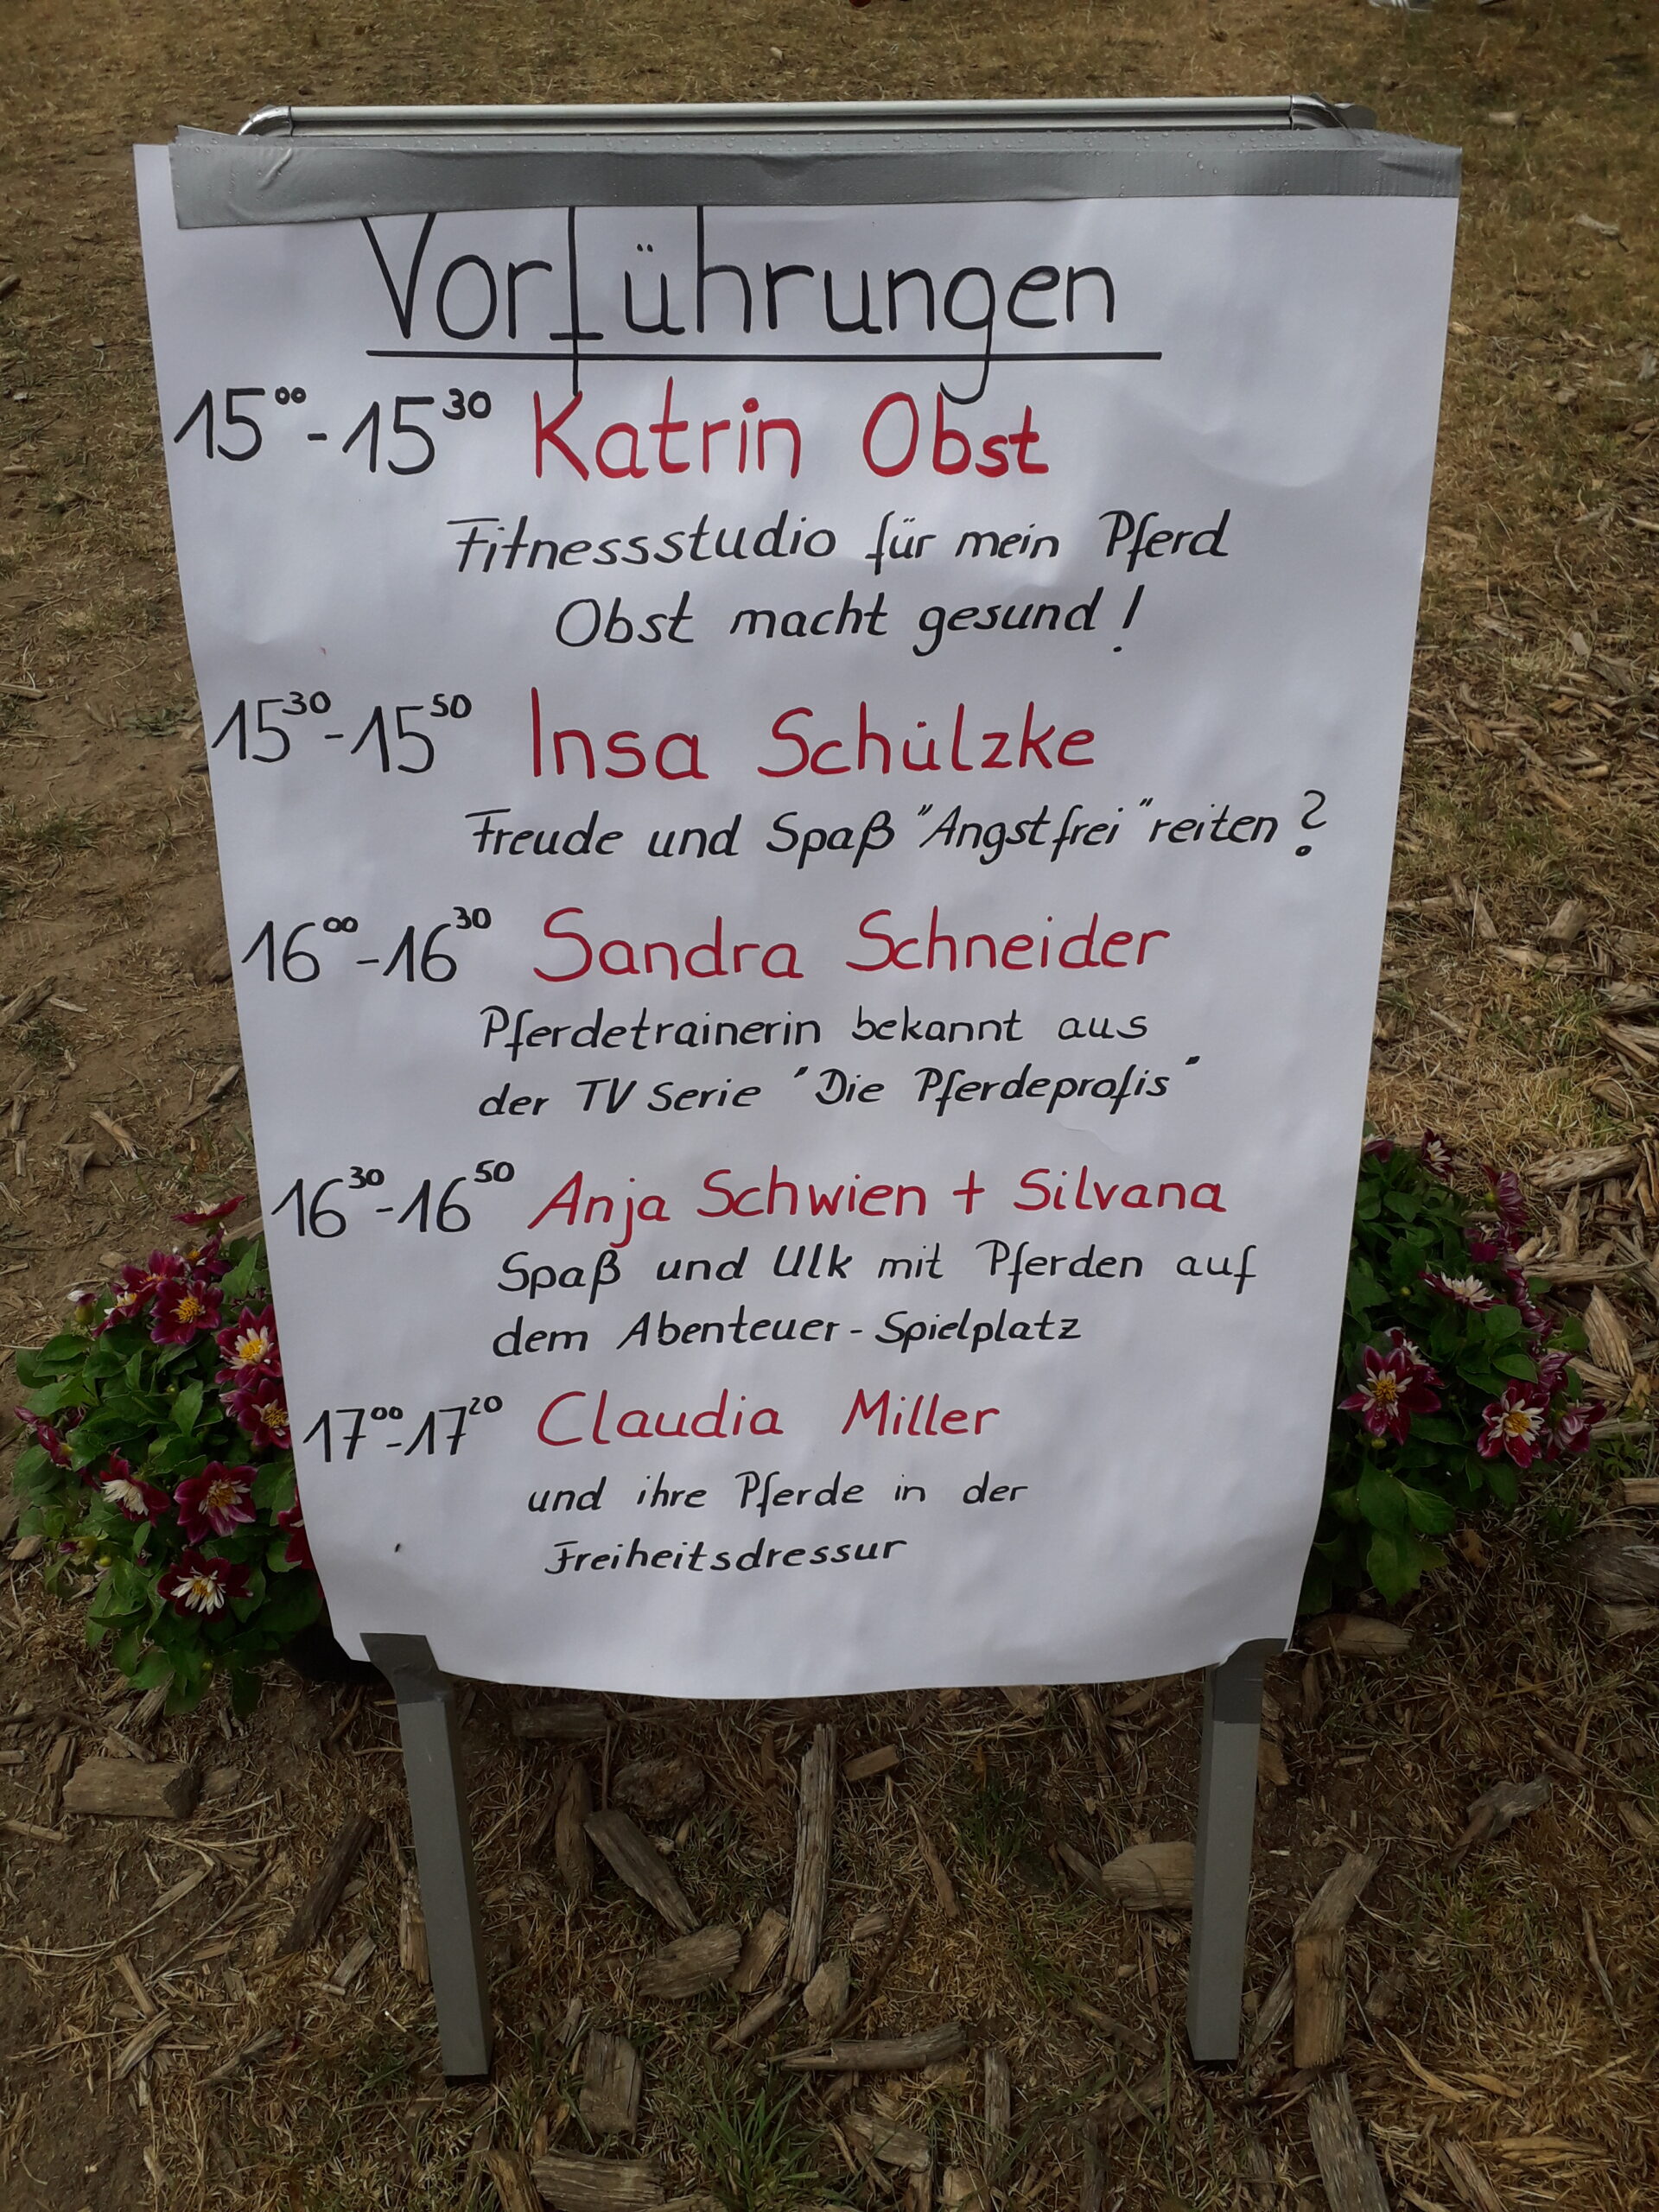 Vorführungen
15⁰⁰-15³⁰ Katrin Obst
Fitnessstudio für mein Pferd
Obst macht gesund!
15³⁰-15⁵⁰ Insa Schülzke
Freude und Spaß "Angstfrei" reiten?
16⁰⁰-16³⁰ Sandra Schneider
Pferdetrainerin bekannt aus
der TV Serie "Die Pferdeprofis"
16³⁰-16⁵⁰ Anja Schwien + Silvana
Spaß und Ulk mit Pferden auf
dem Abenteuer-Spielplatz
17⁰⁰-17²⁰ Claudia Miller
und ihre Pferde in der
Freiheitsdressur